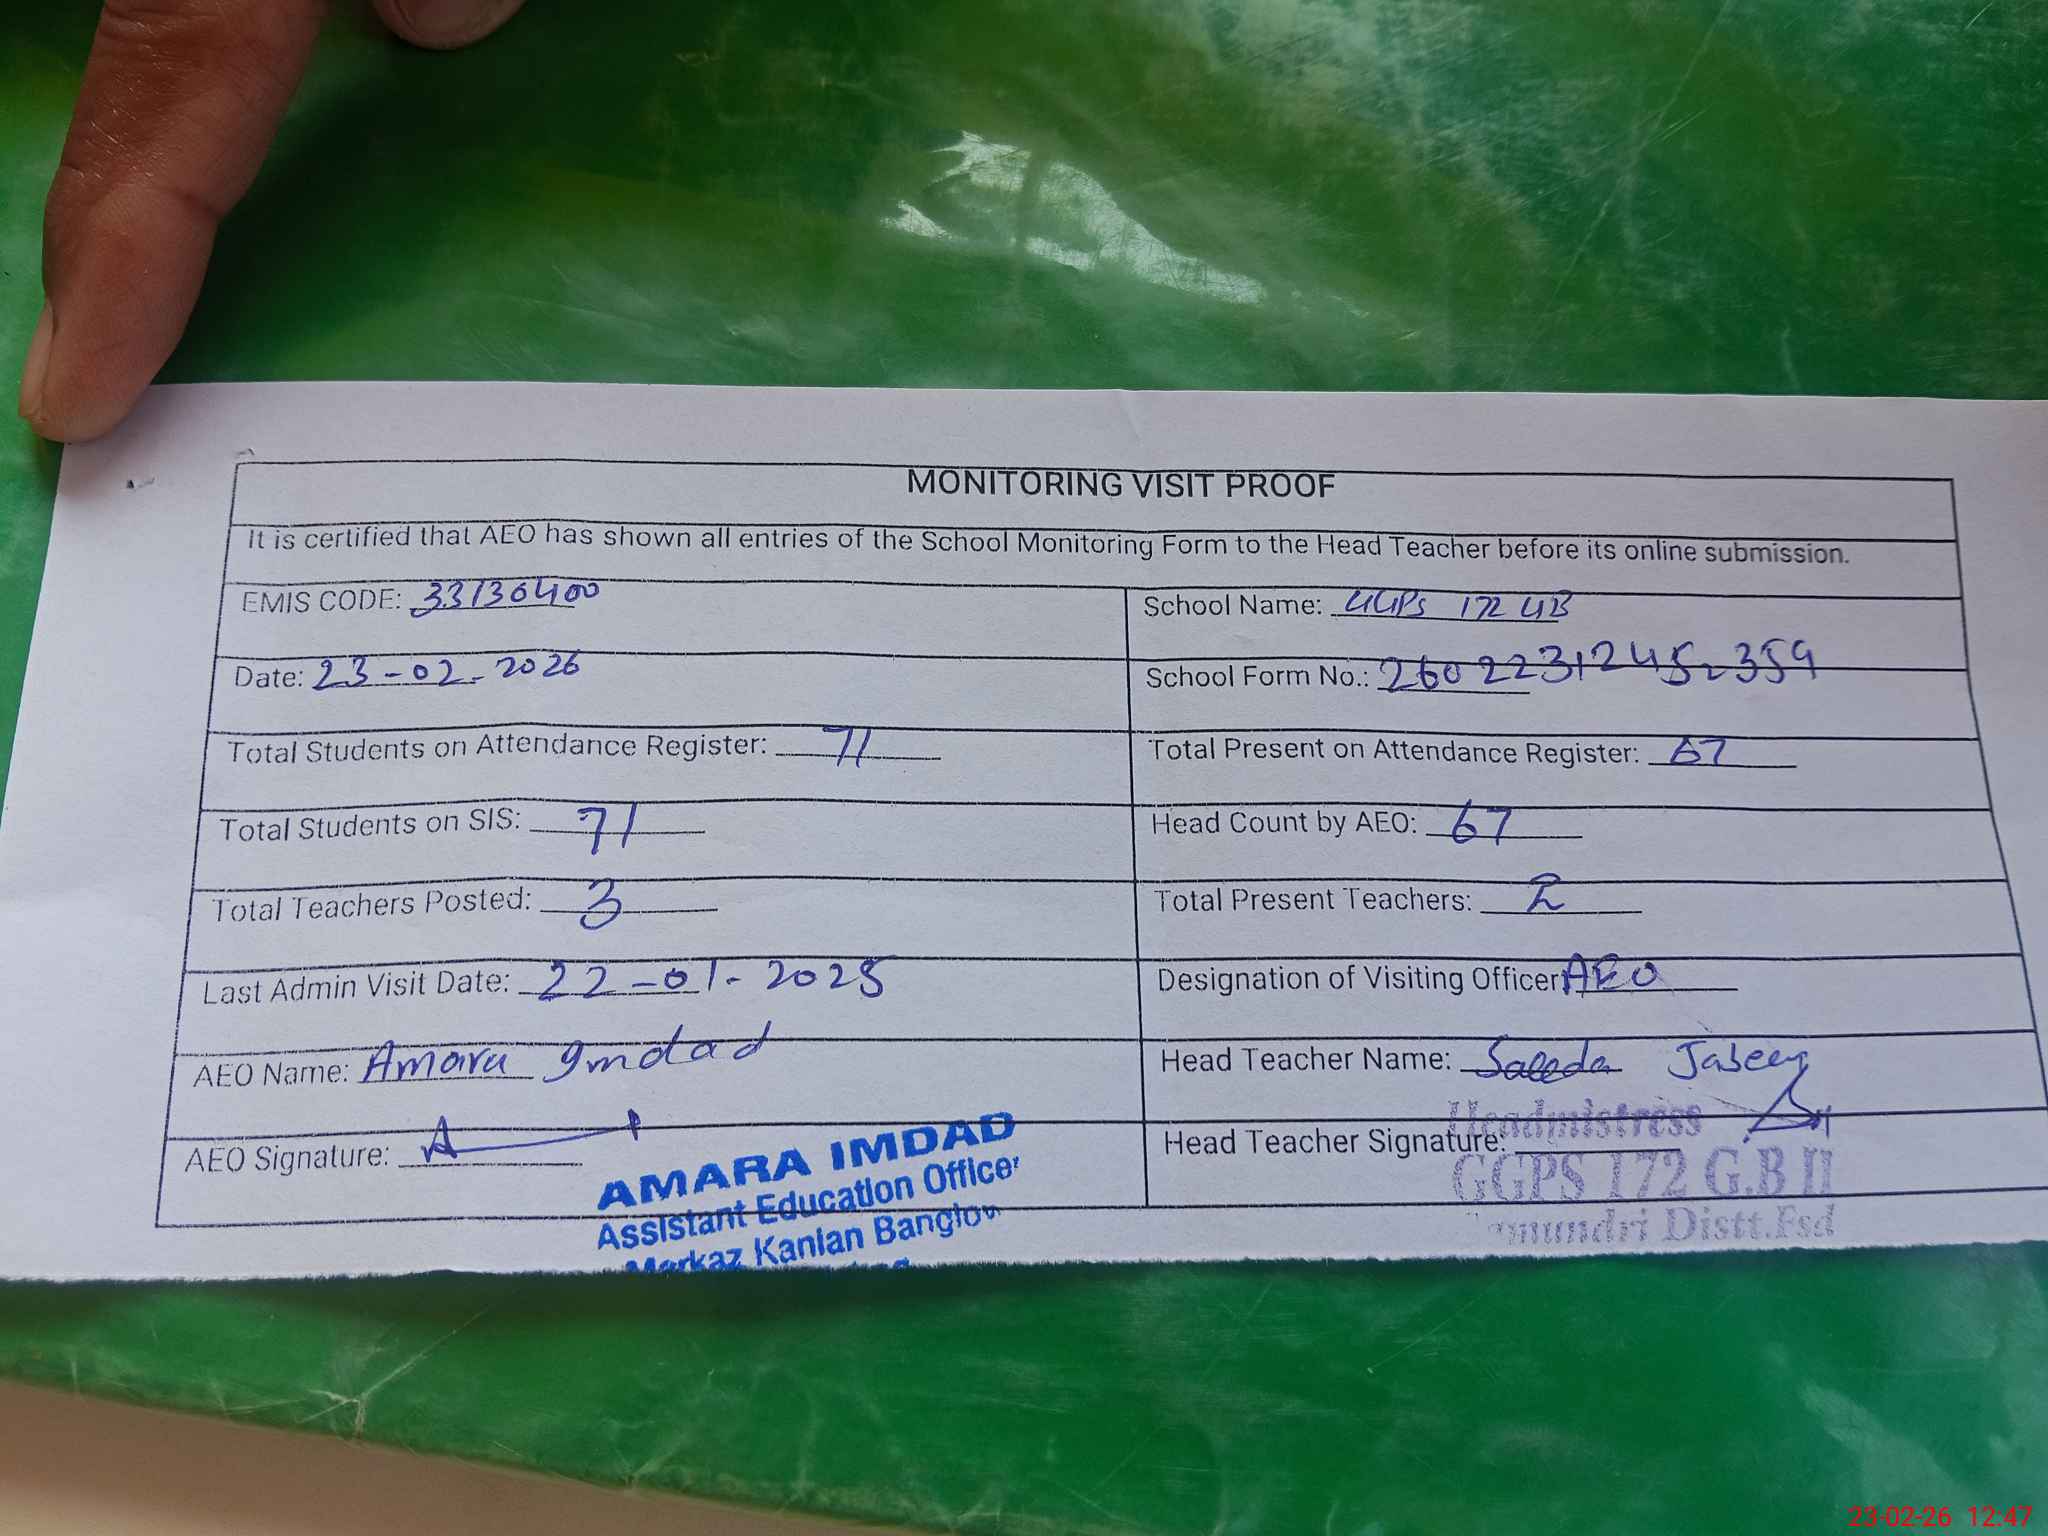 MONITORING VISIT PROOF
It is certified that AEO has shown all entries of the School Monitoring Form to the Head Teacher before its online submission.
EMIS CODE: 33130400
School Name: GGPS 172 GB
Date: 23-02-2026
School Form No.: 26022312452359
Total Students on Attendance Register: 71
Total Present on Attendance Register: 67
Total Students on SIS: 71
Head Count by AEO: 67
Total Teachers Posted: 3
Total Present Teachers: 2
Last Admin Visit Date: 22-01-2025
Designation of Visiting Officer: AEO
AEO Name: Amara Imdad
Head Teacher Name: Saeeda Jabeen
AEO Signature:
Head Teacher Signature:
AMARA IMDAD
Assistant Education Officer
Markaz Kanian Banglow
Headmistress
GGPS 172 G.B II
Distt.Fsd
23-02-26 12:47